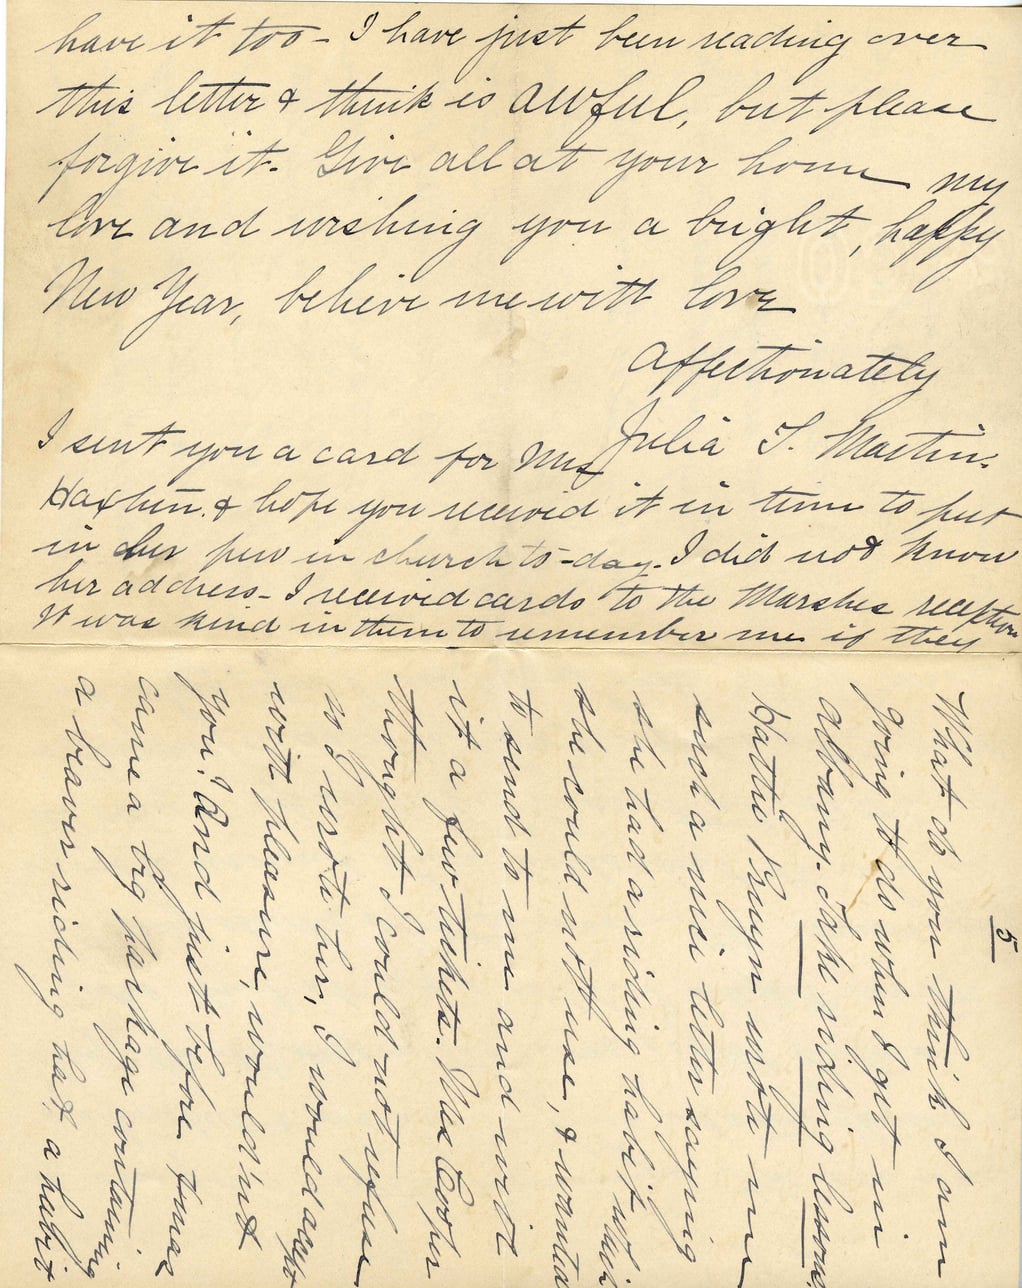 have it too - I have just been reading over
this letter & think is awful, but please
forgive it. Give all at your home my
love and wishing you a bright, happy
New Year, believe me with love
Affectionately
Julia T. Martin.
I sent you a card for Mrs
& hope you received it in time to put
in her pew in church to-day. I did not know
her address - I received cards to the Marshes reception
It was kind in them to remember me if they
5
What do you think I am
going to do when I get in
Albany. Take riding lessons.
Hattie Pruyn wrote me
such a nice letter saying
she had a riding habit which
she could not use, & wanted
to send to me and with
it a few tickets. Mrs Corper
thought I could not refuse
so I wrote her, I would accept
with pleasure, wouldn't
you? And just before Xmas
came a big package containing
a beaver riding hat, a habit